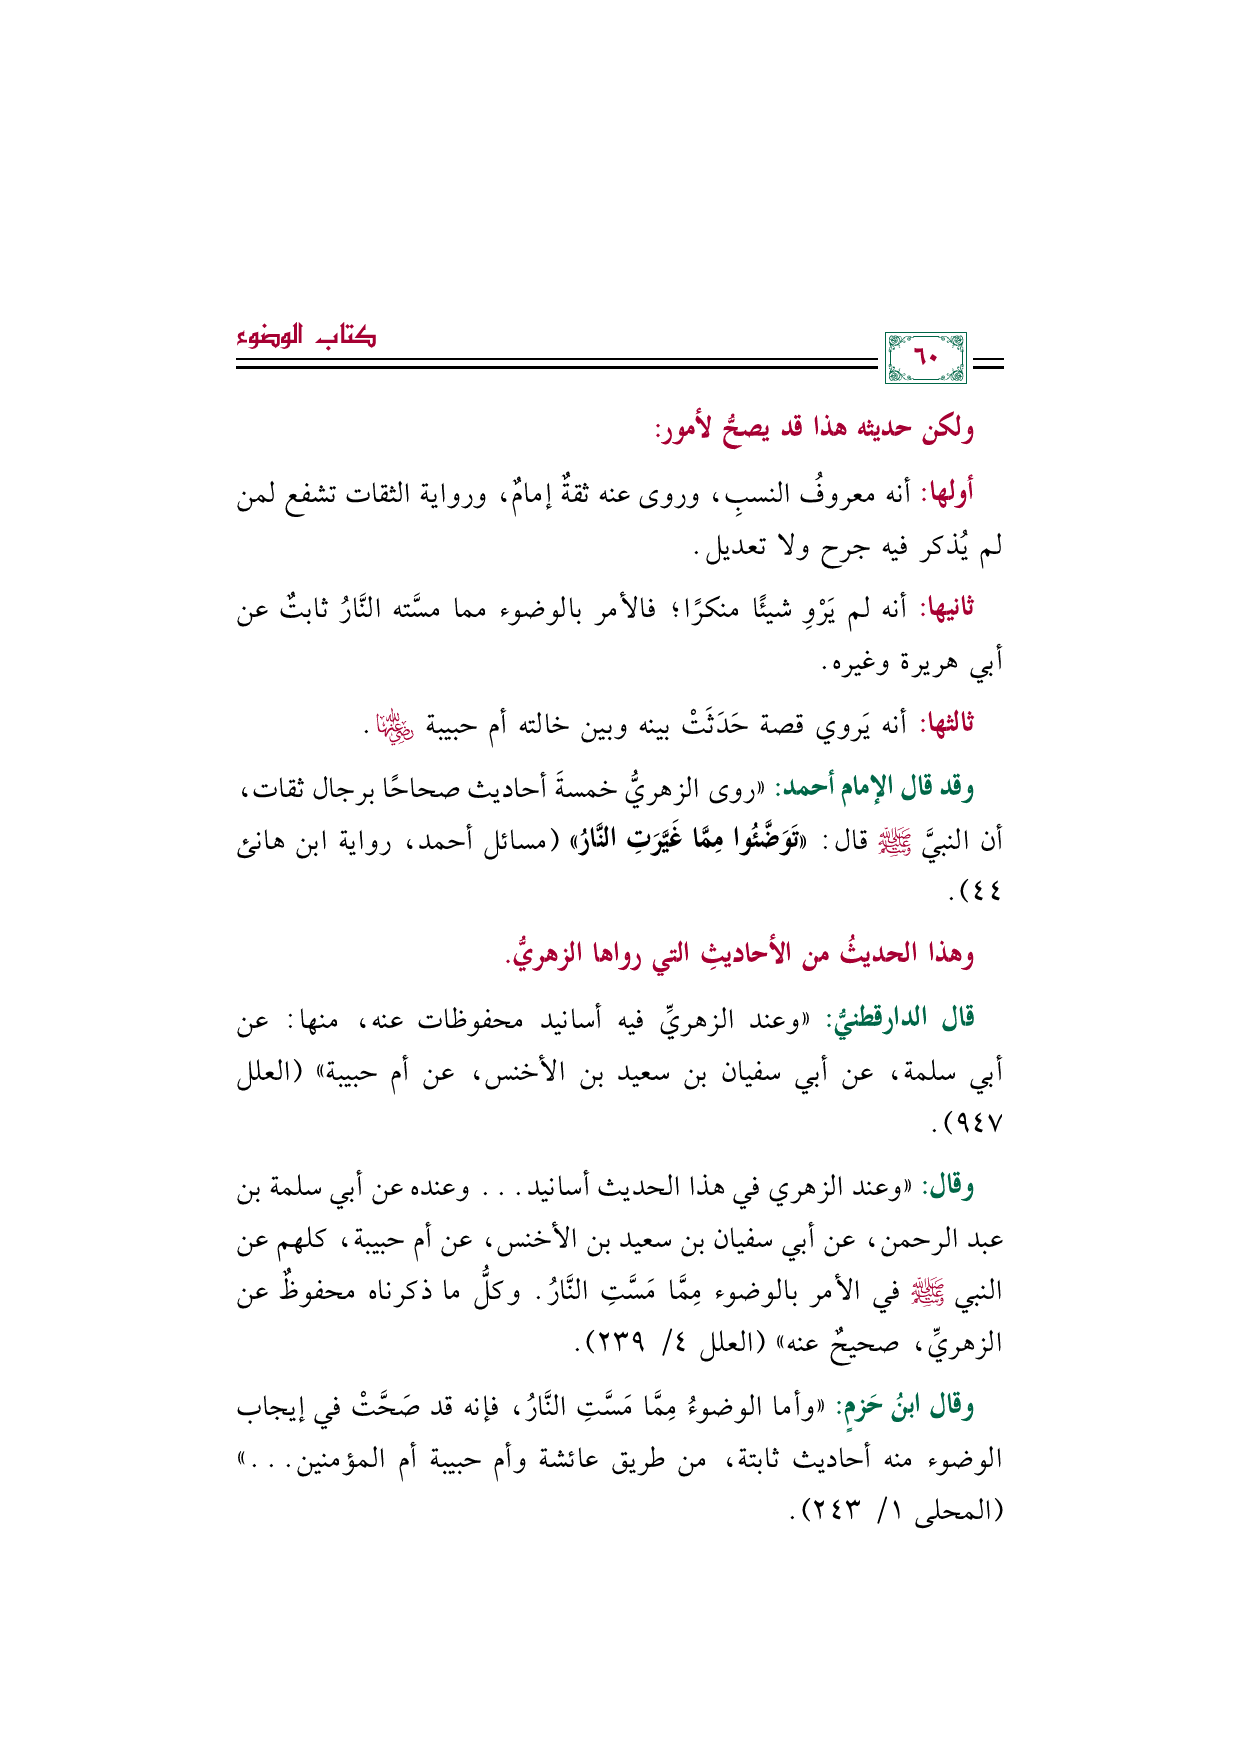 كتاب الوضوء
٦٠
ولكن حديثه هذا قد يصحُّ لأمور:
أولها: أنه معروفُ النسبِ، وروى عنه ثقةٌ إمامٌ، ورواية الثقات تشفع لمن
لم يُذكر فيه جرح ولا تعديل.
ثانيها: أنه لم يَرْوِ شيئًا منكرًا؛ فالأمر بالوضوء مما مسَّته النَّارُ ثابتٌ عن
أبي هريرة وغيره.
ثالثها: أنه يَروي قصة حَدَثَتْ بينه وبين خالته أم حبيبة رضي الله عنها.
وقد قال الإمام أحمد: «روى الزهريُّ خمسةَ أحاديث صحاحًا برجال ثقات،
أن النبيَّ ﷺ قال: «تَوَضَّئُوا مِمَّا غَيَّرَتِ النَّارُ» (مسائل أحمد، رواية ابن هانئ
٤٤).
وهذا الحديثُ من الأحاديثِ التي رواها الزهريُّ.
قال الدارقطنيُّ: «وعند الزهريِّ فيه أسانيد محفوظات عنه، منها: عن
أبي سلمة، عن أبي سفيان بن سعيد بن الأخنس، عن أم حبيبة» (العلل
٩٤٧).
وقال: «وعند الزهري في هذا الحديث أسانيد... وعنده عن أبي سلمة بن
عبد الرحمن، عن أبي سفيان بن سعيد بن الأخنس، عن أم حبيبة، كلهم عن
النبي ﷺ في الأمر بالوضوء مِمَّا مَسَّتِ النَّارُ. وكلُّ ما ذكرناه محفوظٌ عن
الزهريِّ، صحيحٌ عنه» (العلل ٤/ ٢٣٩).
وقال ابنُ حَزمٍ: «وأما الوضوءُ مِمَّا مَسَّتِ النَّارُ، فإنه قد صَحَّتْ في إيجاب
الوضوء منه أحاديث ثابتة، من طريق عائشة وأم حبيبة أم المؤمنين...»
(المحلى ١/ ٢٤٣).